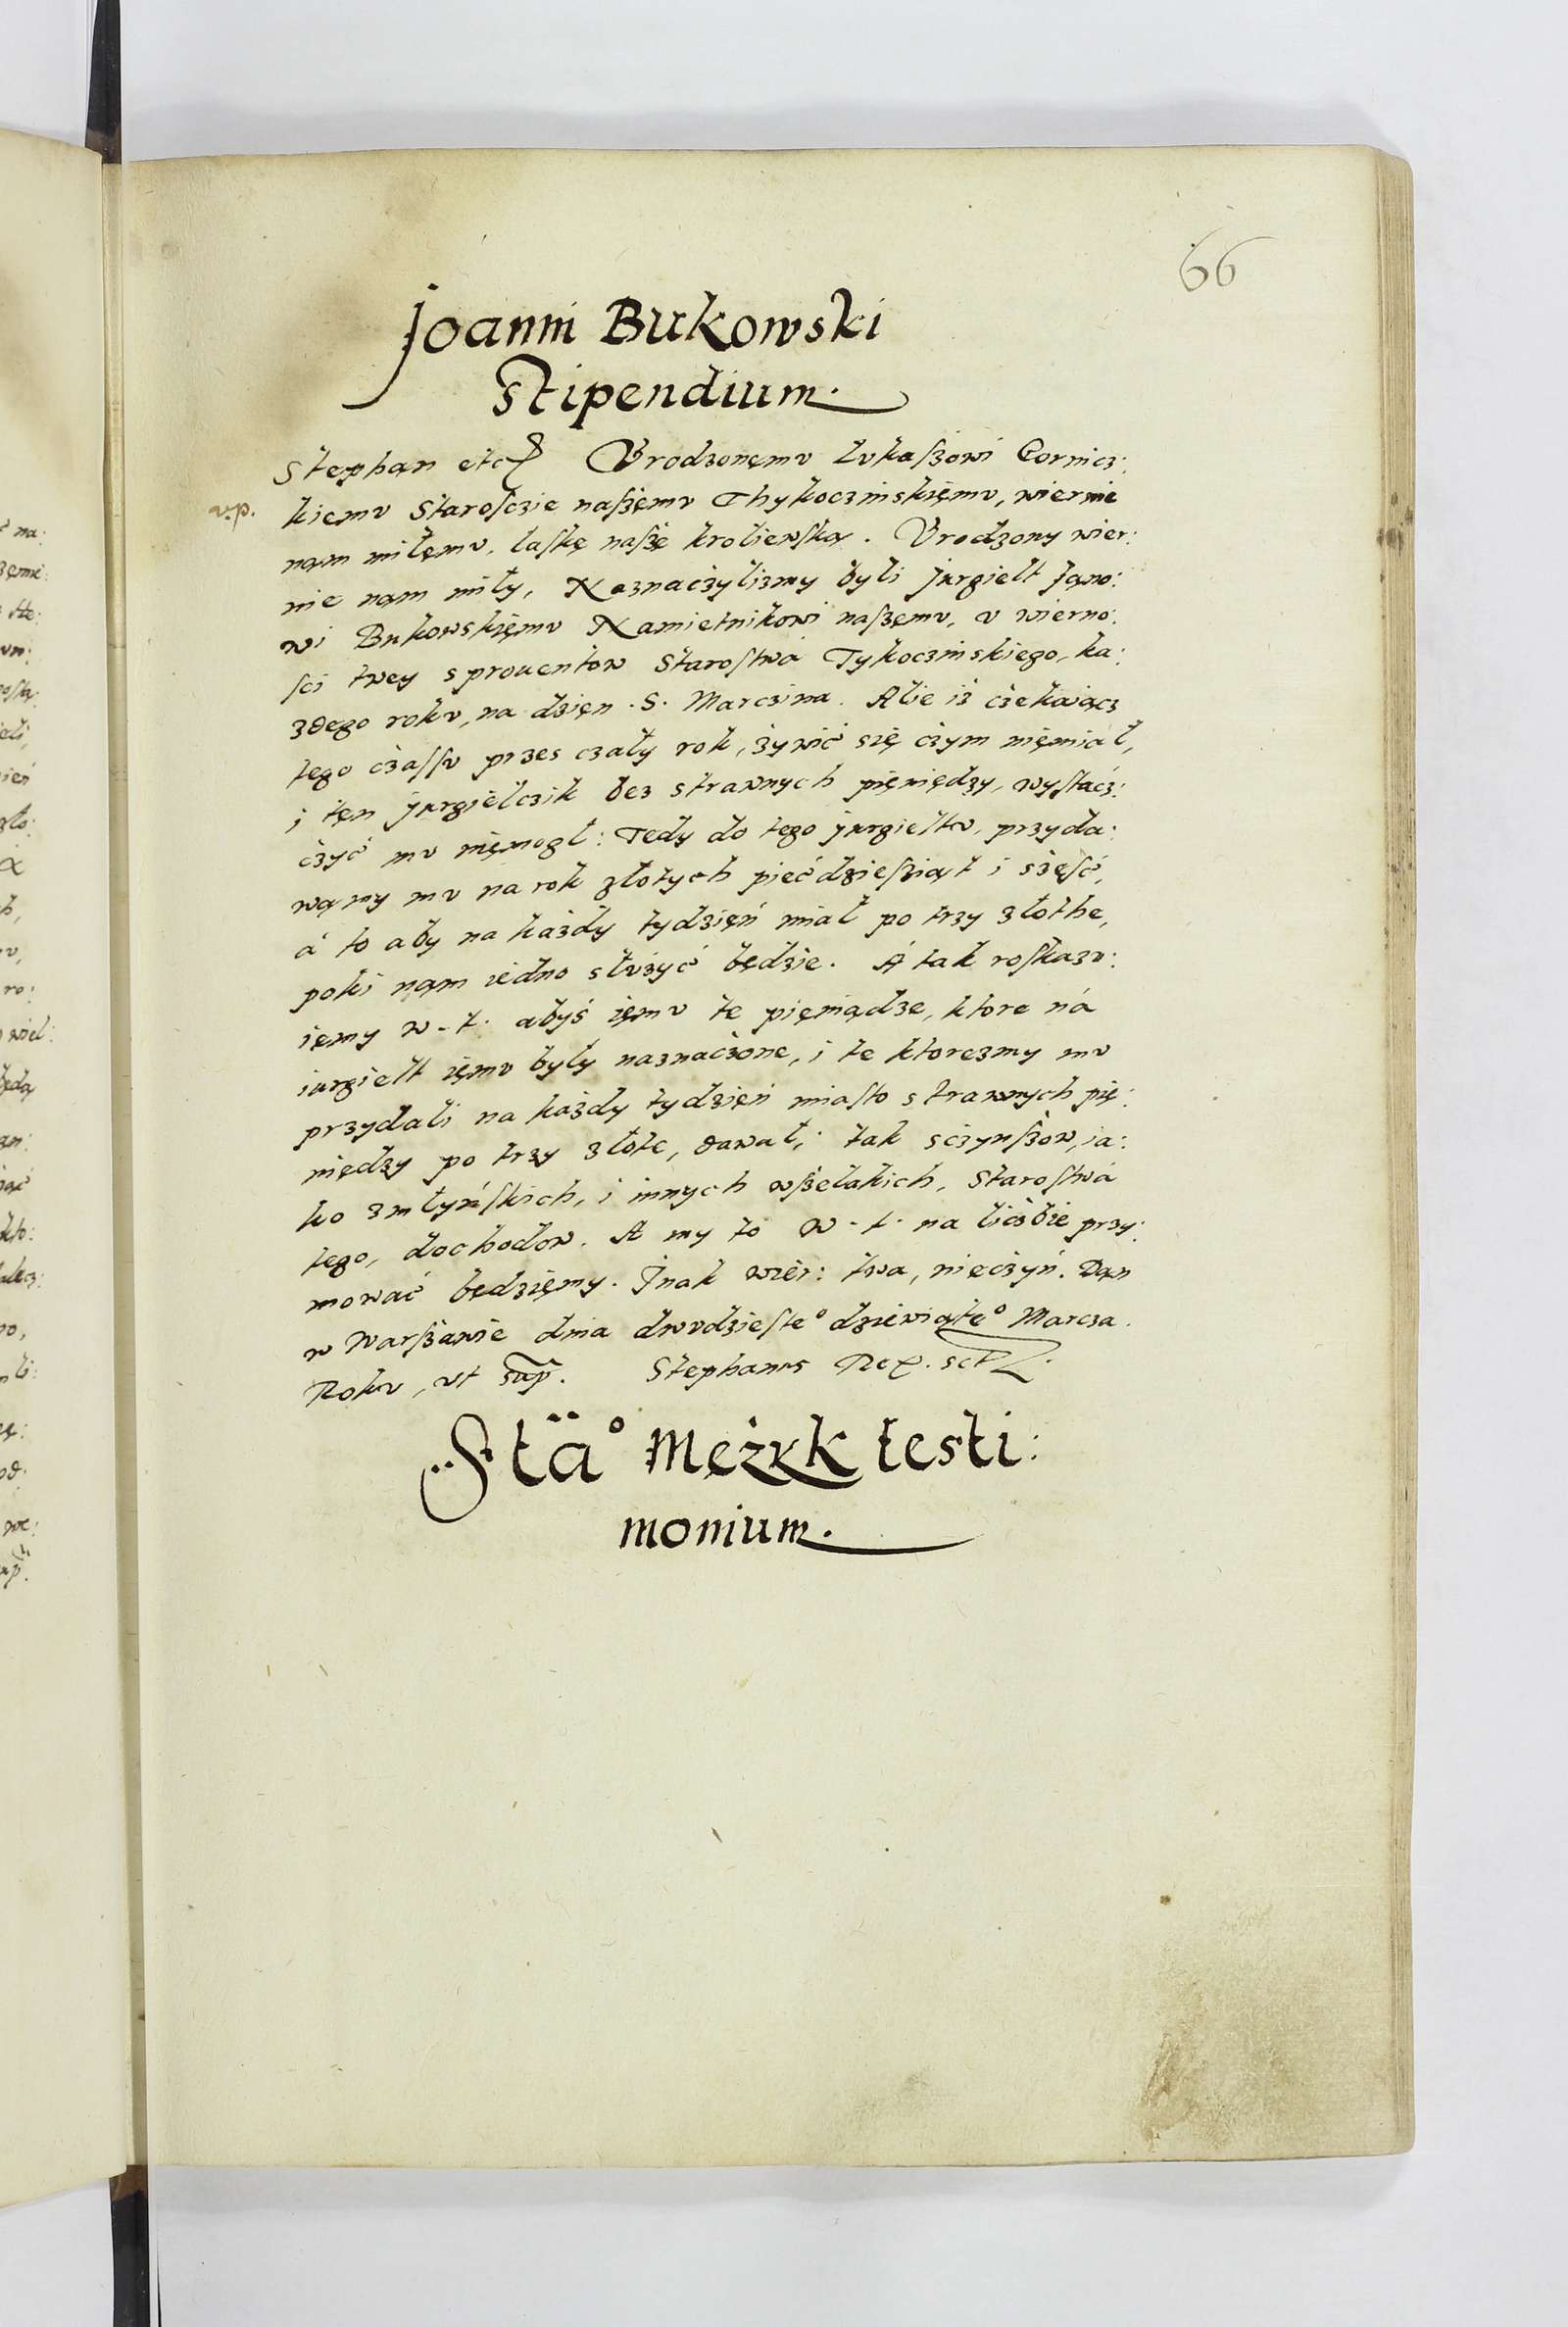 66
Joanni Bukowski
Stipendium.
Stephan etc Vrodzonęmv Lvkaſzowi Gornicz:
v.p.
kiemv Staroſczie naſzęmv Thykoczinskięmv, wiernie
nąm miłęmv, laſkę naſzę krolięwſką. Vrodzony wier:
nie nąm miły, Naznaczylismy byli Jurgielt Jąno:
wi Bukowskięmv Namietnikowi naſzęmv, v wierno:
ſci twey s prouentow Staroſtwá Tykoczinskiego, ka:
zdego rokv, na dzięn .S. Marczina. Alie iż czekaiącz
tego czaſſv przes czały rok, żywić się czym nięmiał,
i tęn jurgielczik bez strawnych pięniędzy, wyſtácz:
czyć mv nięmogł: Tedy do tego jurgieltv, przyda:
wąmy mv na rok złotych pięćdzieſiąt i szęść,
á to aby na każdy tydzięń miał po trzy złothe,
poki nąm iedno slvżyć będzie. A tak roſkazv:
ięmy w. t. abyś ięmv te pięniądze, ktore ná
iurgielt ięmv były naznaczone, i te ktorezmy mv
przydali na każdy tydzięń miaſto strawnych pię:
niędzy po trzy złote, dawał, tak sczynſzow, ia:
ko z młyńſkich, i innych wſzelakich, Staroſtwá
tego, dochodow. A my to w. t. na liczbie przy:
mować będzięmy. Jnak wier: twa, nięczyń. Dąn
w Warſzawie dnia dwvdzieſte⁰ dziewiąte⁰ Marcza.
Rokv, vt sup. Stephanus Rex. sct
Sta⁰ Mężyk testi:
monium.